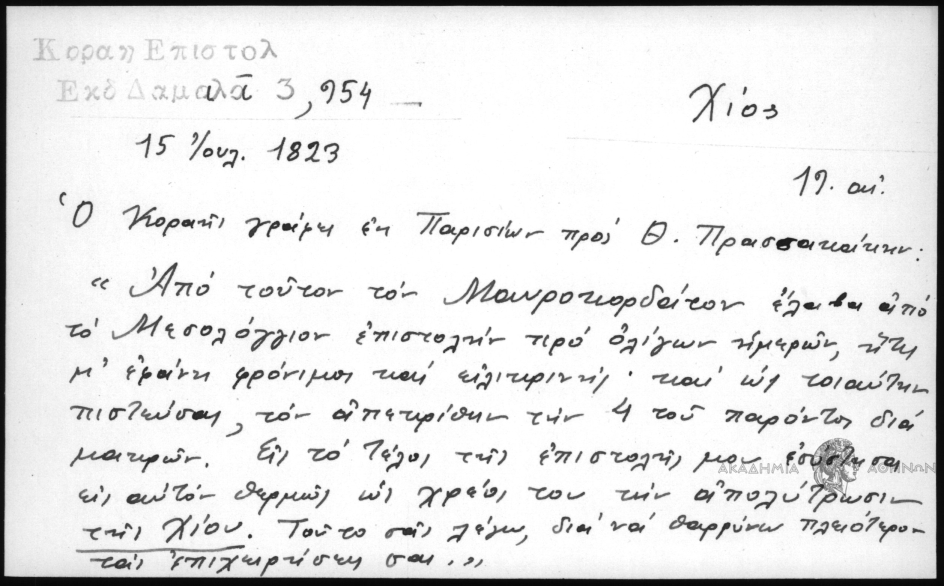 Κοραη Επιστολ
Εκδ Δαμαλα 3, 954
Χίος
15 Ἰουλ. 1823
19. αἰ.
Ὁ Κοραῆς γράφει ἐκ Παρισίων πρός Θ. Πρασσακάκην:
"Ἀπό τοῦτον τόν Μαυροκορδάτον ἔλαβα ἀπό
τό Μεσολόγγιον ἐπιστολήν πρό ὀλίγων ἡμερῶν, ἥτις
μ' ἐφάνη φρόνιμος καί εἰλικρινής· καί ὡς τοιαύτην
πιστεύσας, τόν ἀπεκρίθην τήν 4 τοῦ παρόντος διά
μακρῶν. Εἰς τό τέλος τῆς ἐπιστολῆς μου ἐσύστησα
εἰς αὐτόν θερμῶς ὡς χρέος του τήν ἀπολύτρωσιν
τῆς Χίου. Τοῦτο σᾶς λέγω, διά νά θαρρύνω πλειότερον
τάς ἐπιχειρήσεις σας."
ΑΚΑΔΗΜΙΑ ΑΘΗΝΩΝ